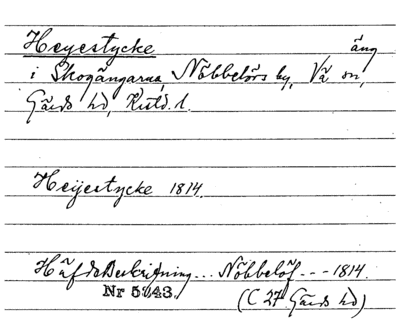 Heyestycke äng
i Skogängarna, Nöbbelövs by, Vä sn,
Gärds hd, Kristd. l.
Heijestycke 1814.
Häfdebeskrifning... Nöbbelöf --- 1814.
Nr 5743. (C 27 Gärds hd)